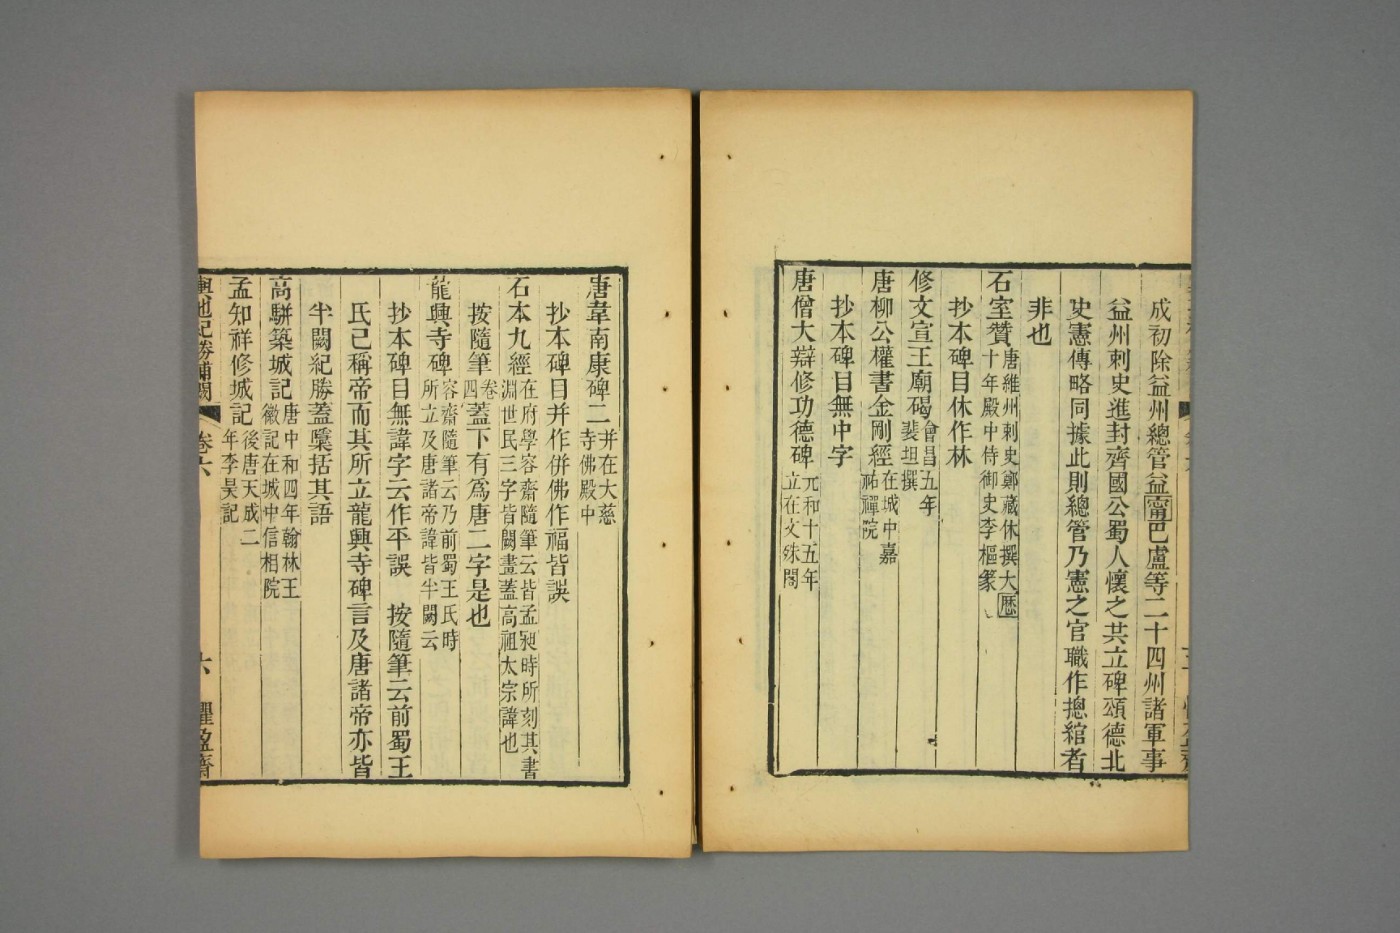 成初除益州總管益寧巴盧等二十四州諸軍事
益州刺史進封齊國公蜀人懷之共立碑頌德北
史憲傳略同據此則總管乃憲之官職作摠綰者
非也
石室贊唐維州刺史鄭藏休撰大曆十年殿中侍御史李樞篆
抄本碑目休作林
修文宣王廟碣會昌五年裴坦撰
唐柳公權書金剛經在城中嘉祐禪院
抄本碑目無中字
唐僧大辯修功德碑元和十五年立在文殊閣
唐韋南康碑二并在大慈寺佛殿中
抄本碑目并作併佛作福皆誤
石本九經在府學容齋隨筆云皆孟昶時所刻其書淵世民三字皆闕畫蓋高祖太宗諱也
按隨筆卷四蓋下有爲唐二字是也
龍興寺碑容齋隨筆云乃前蜀王氏時所立及唐諸帝諱皆半闕云
抄本碑目無諱字云作平誤 按隨筆云前蜀王
氏已稱帝而其所立龍興寺碑言及唐諸帝亦皆
半闕紀勝蓋檃括其語
高駢築城記唐中和四年翰林王徽記在城中信相院
孟知祥修城記後唐天成二年李昊記
輿地紀勝補闕 卷六 六 懼盈齋